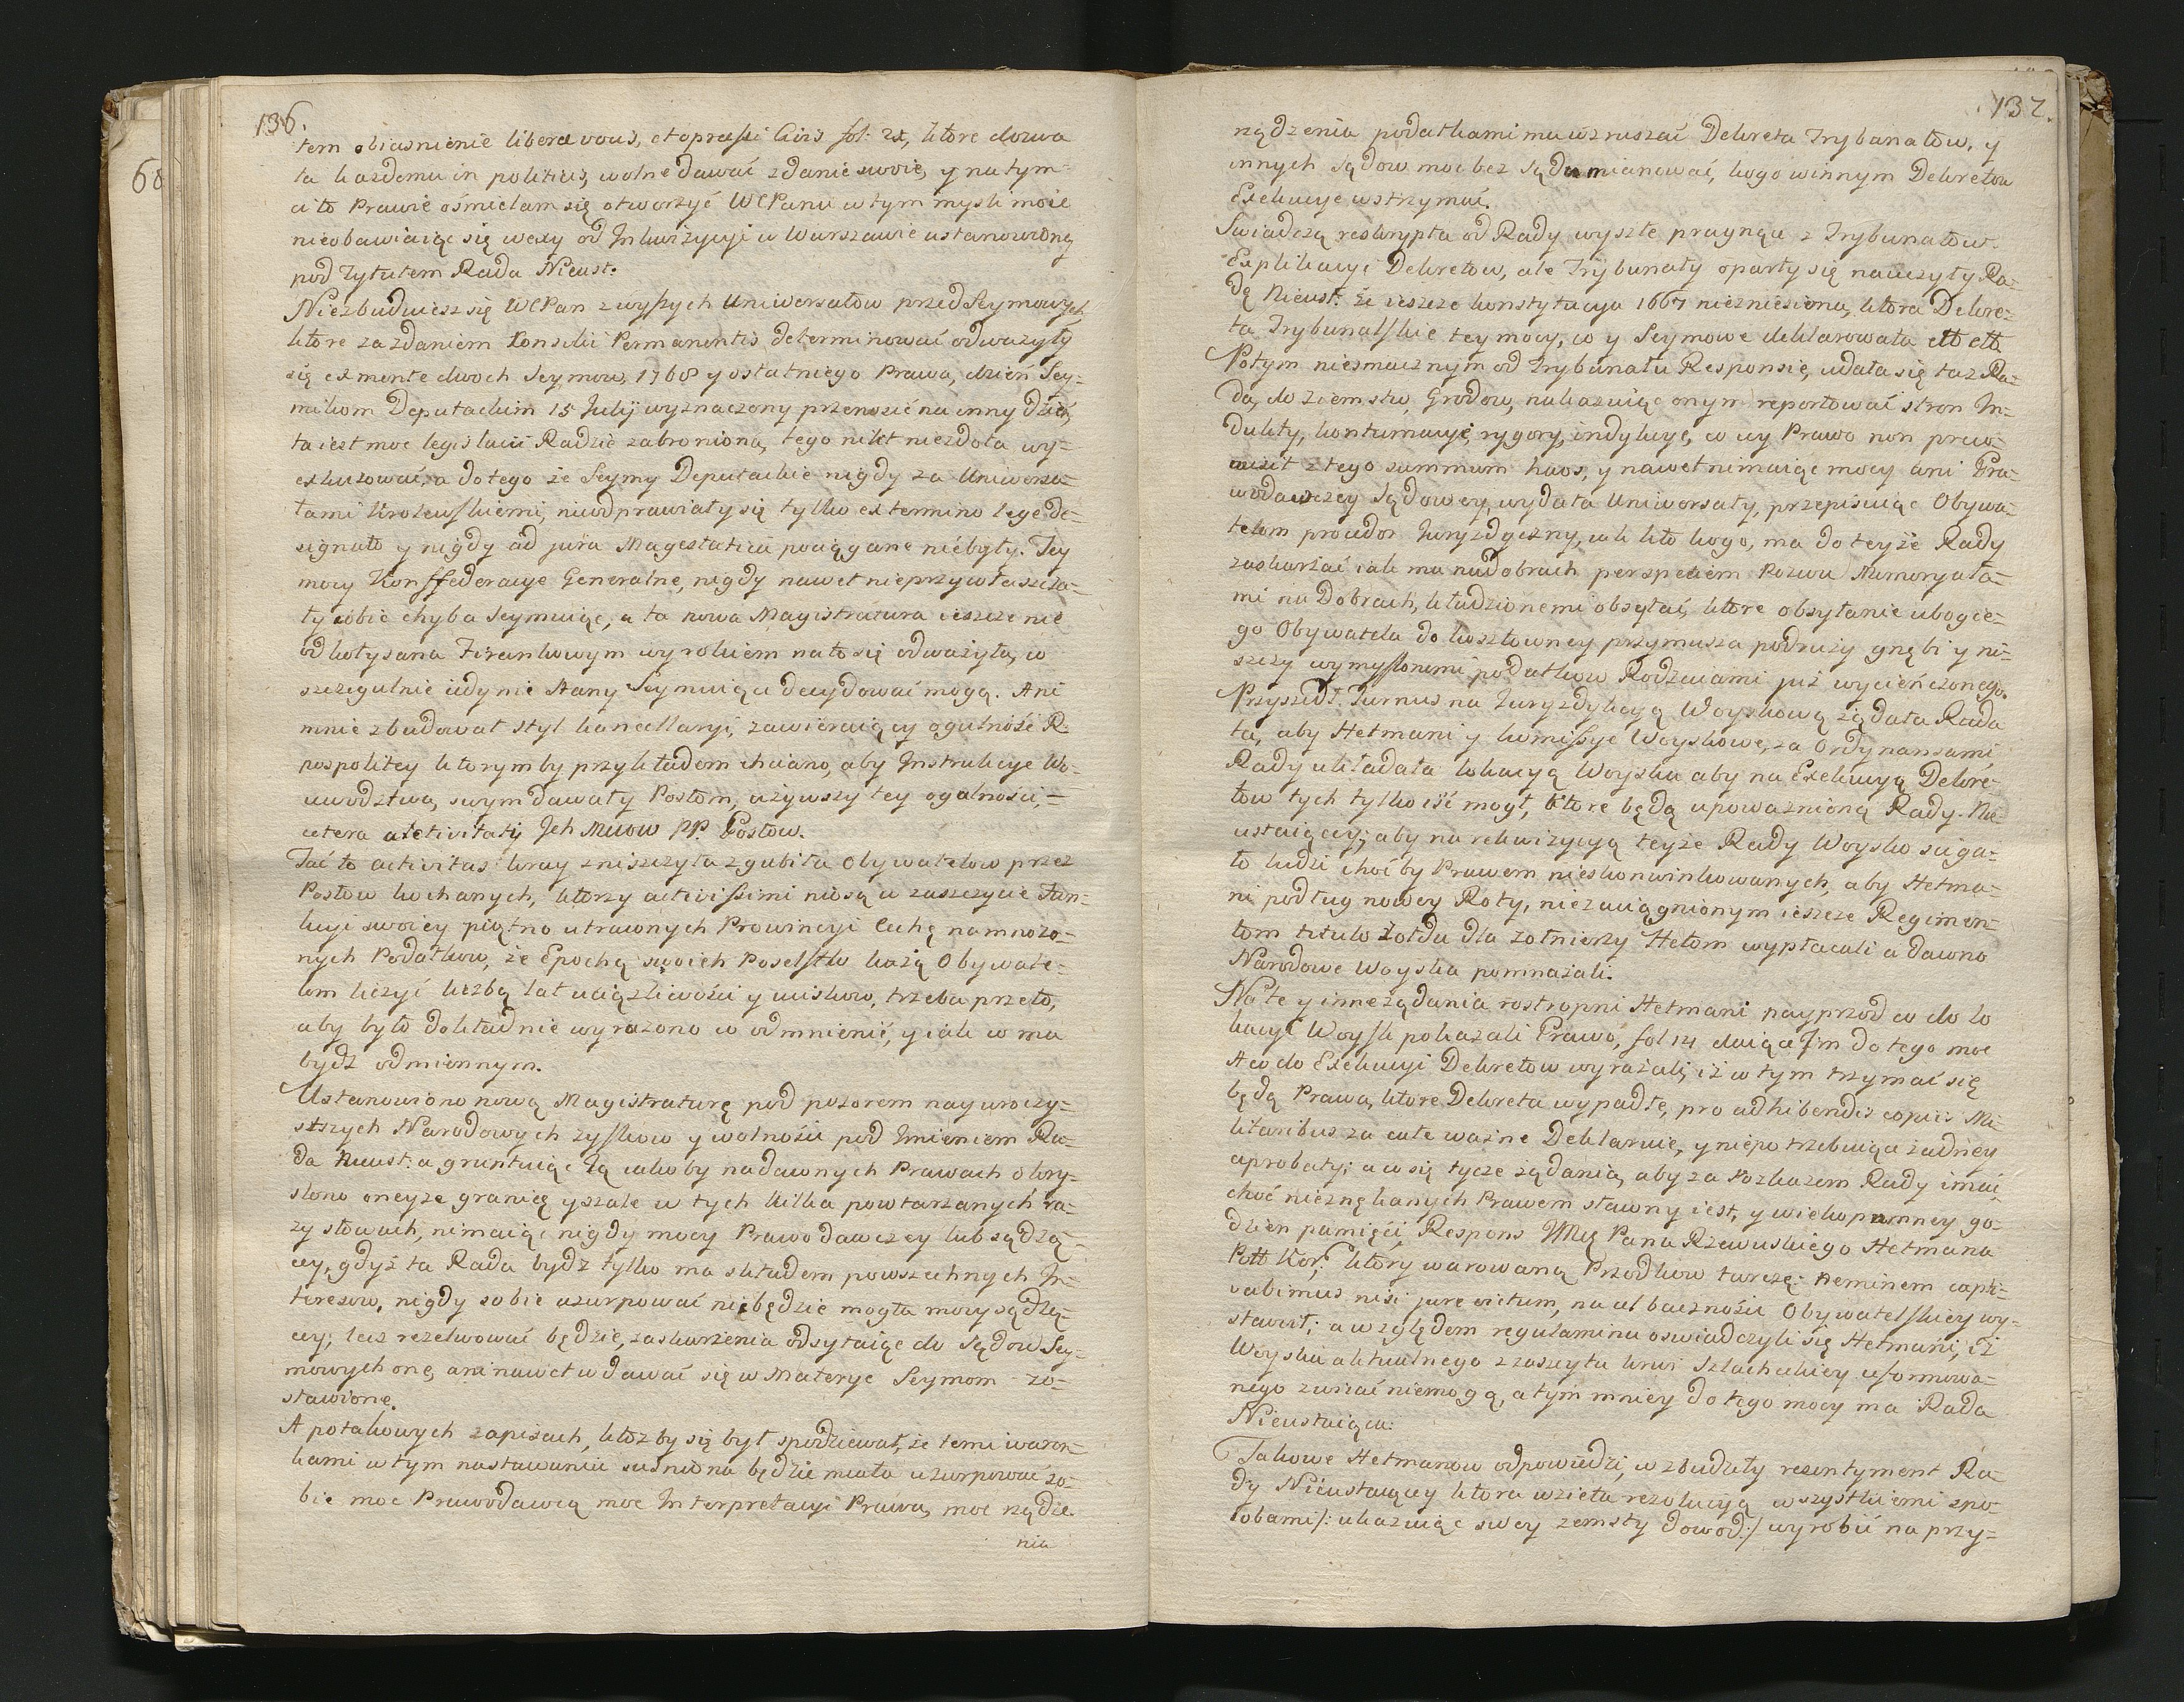 136.
tem obiasnienie liberæ vocis, et opressi Civis fol: 21, ktore dozwa
la kazdemu in politicis, wolne dawać zdanie swoie, y na tym
ci to Prawie ośmielam się otworzyć WCPanu w tym mysli moie
nieobawiaiąc się wexy od Inkwizycyi w Warszawie ustanowioney
pod Tytułem Rada Nieust:
Niezbuduiesz się WCPan z wyszych Uniwersałow przed Seymowych
ktore za zdaniem Konsilii Permanentis determinować odwazyły
się ex mente dwoch Seymow, 1768 y ostatniego Prawa, dzień Sey=
mikom Deputackim 15 Julij wyznaczony przenosić na inny dzień,
ta iest moc legislacii Radzie zabroniona, tego nikt niezdoła wy=
exkuzować, a do tego że Seymy Deputackie nigdy za Uniwersa=
łami Krolewskiemi, nieodprawiały się tylko ex termino lege de=
signato y nigdy ad jura Magestatica pociągane niebyły. Tey
mocy Konffederacye Generalne, nigdy nawet nieprzywłaszcza=
ły sobie chyba Seymuiąc, a ta nowa Magistratura ieszcze nie
odkołysana Firankowym wyrokiem na to się odważyła, co
szczegulnie iedynie Stany Seymuiące decydować mogą. Ani
mnie zbudował styl kancellaryi, zawieraiący ogulność R.
pospolitey ktorymby przykładem chciano, aby Instrukcye Wo=
iewodztwa, swym dawały Posłom, użyiwszy tey ogalności,=
cetera activitati Jch Mciow PP. Posłow.
Tać to activitas kray zniszczyła zgubiła Obywatelow przez
Posłow kochanych, ktorzy activissimi niosą w zaszczycie Fun=
kcyi swoiey piątno utraconych Prowincyi Cechę namnozo=
nych Podatkow, że Epochą swoich Poselstw każą Obywate=
lom liczyć liczbą lat uciązliwości y uciskow, trzeba przeto,
aby było dokładnie wyrazono co odmnienić, y iak co ma
bydź odmiennym.
Ustanowiono nową Magistraturę pod pozorem nayuroczy=
stszych Narodowych zyskow y wolności pod Imieniem Ra=
da Nieust: a gruntuiąc Ią iakoby na dawnych Prawach okry=
slono oneyże granicę y szale w tych kilka powtarzanych ra=
zy słowach, nimaiąc nigdy mocy Prawodawczey lub sądzą=
cey, gdyż ta Rada bydź tylko ma składem powszechnych In=
teressow, nigdy sobie uzurpować niebędzie mogła mocy sądzą=
cey; lecz rezelwować będzie, zaskarżenia odsyłaiąc do Sądow Sey=
mowych one, ani nawet wdawać się w Materye Seymom zo=
stawione.
A po takowych zapisach, ktoz by się był spodziewał, że temi warun=
kami w tym nastawaniu scisniona będzie miała uzurpować so=
bie moc Prawodawczą moc Interpretacyi Prawa, moc rządze=
nia
137.
rządzenia podatkami ma wzruszać Dekreta Trybunałow, y
innych Sądow moc bez Sądu mianować, kogo winnym Dekretow
Exekucye wstrzymać.
Swiadczą reskrypta od Rady wyszłe pragnące z Trybunałow
Explikacyi Dekretow, ale Trybunały oparły się nauczyły Ra=
dę Nieust: że ieszcze konstytucya 1667 niezniesiona, ktora Dekre=
ta Trybunalskie tey mocy, co y Seymowe deklarowała etc etc
Potym niesmacznym od Trybunału Responsie, udała się taz Ra=
da, do ziemstw, Grodow, nakazuiąc onym reportować stron In=
dukty, kontumacye, rygory, indykcye, co iey Prawo non præ=
cusit z tego summum haos, y nawet nimaiąc mocy ani Pra=
wodawczey Sądowey, wydała Uniwersały, przepisuiąc Obywa=
telom proceder Juryzdyczny, iak kto kogo, ma do teyże Rady
zaskarżać iak ma nadobrach perspeciem Pozwu Memoryała=
mi na Dobrach, kładzionemi obsyłać, ktore obsyłanie ubogie=
go Obywatela do kosztowney przymusza podruży gnębi y ni=
szczy wymyslonemi podatkow Rodzaiami już wycieńczonego.
Przyszedł Turnus na Juryzdykcyą Woyskową żądała Rada
ta, aby Hetmani y komissye Woyskowe, za Ordynansami
Rady układała lokacyą Woyska aby na Exekucyą Dekre=
tow tych tylko iść mogł, ktore będą upoważnioną Rady Nie
ustaiącey; aby na rekwizycyą teyże Rady Woysko sciga=
ło ludzi choć by Prawem nieskonwinkowanych, aby Hetma=
ni podług nowey Roty, niezaciągnionym ieszcze Regimen=
tom titulo żołdu dla żołnierzy Hetom wypłacali a dawno
Narodowe Woyska pomnażali.
Na te y inne żądania rostropni Hetmani nayprzod co do lo
kacyi Woysk pokazali Prawo, fol 14 daiące Im do tego moc
A co do Exekucyi Dekretow wyrażali, iż w tym trzymać się
będą Prawa, ktore Dekreta wypadłe, pro adhibendis copiis Mi=
litaribus za całe ważne Deklaruie, y niepotrzebuiące żadney
aprobaty; a co się tycze żądania, aby za rozkazem Rady imać
choć niezneękanych Prawem sławny iest, y wiekopomney go=
dzien pamięci, Respons JMcę Pana Rzewuskiego Hetmana
Poll Kor: ktory warowaną Przodkow tarczę: Neminem capti=
vabimus nisi jure victum, na cel baczności Obywatelskiey wy=
stawił; a względem regulaminu oswiadczyli się Hetmani, iż
Woyska aktualnego z zaszczytu krwi Szlacheckiey uformowa=
nego zwiiać niemogą, a tym mniey do tego mocy ma Rada
Nieustaiąca:
Takowe Hetmanow odpowiedzi, wzbudzały resentyment Ra=
dy Nieustaiącey ktora wzieła rezolucyą wszystkiemi spo=
sobami /: ukazuiąc swey zemsty dowod :/ wyrobić na przy=